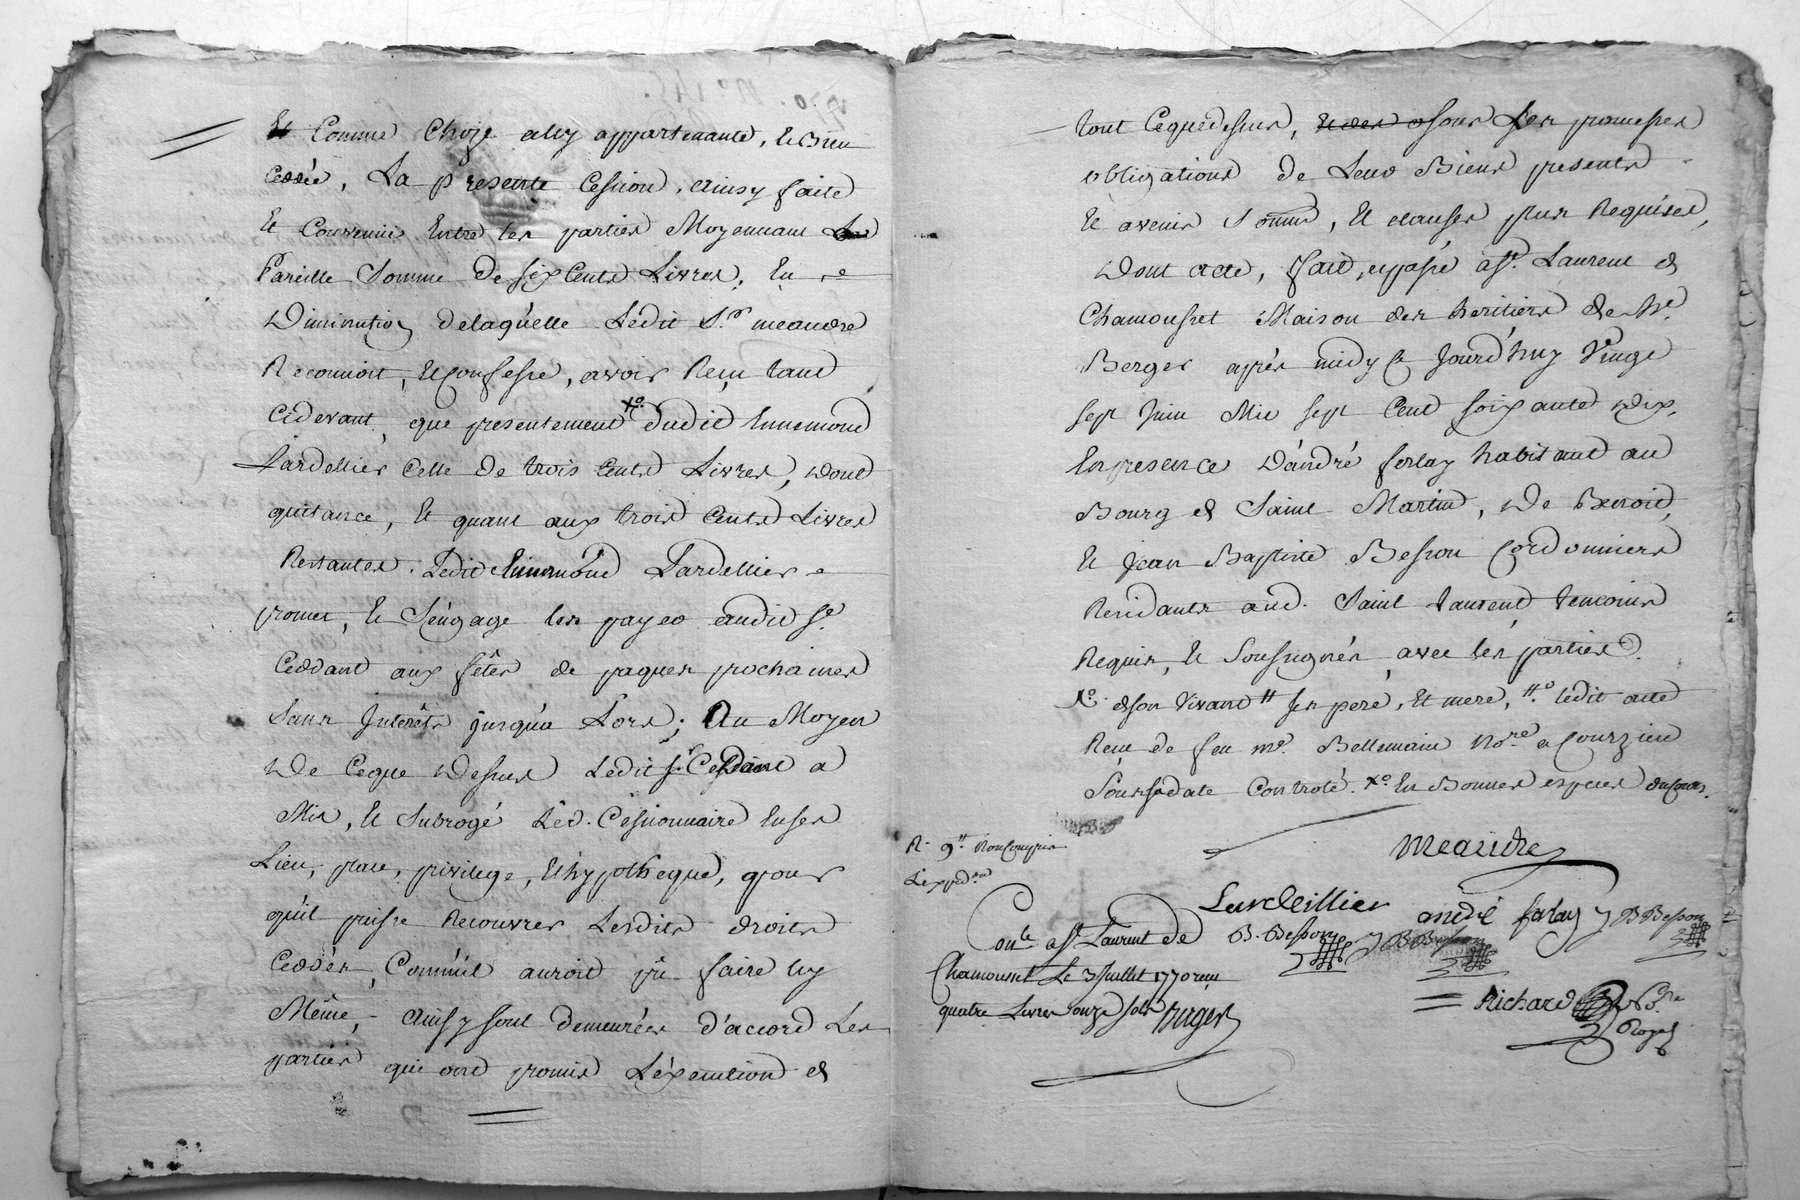 Et Comme Chose a luy appartenante, le Bien
Ceddée, La presente Cession, ainsy faite
Et Convenue Entre les parties Moyennant La
Pareille Somme de six Cents Livres, En
Diminution delaquelle Ledit S.r meandre
Reconnoit, et Confesse, avoir Reçu tant
cidevant, que presentement X.o dudit Ennemond
Lardellier Celle de trois Cents Livres, dont
quitance, Et quant aux trois Cents Livres
Restantes. Ledit Ennemond Lardellier
promet, et S'engage les payer audit S.r
Ceddant aux fêtes de paques prochaines
Sans Interêts jusqu'a Lors; Au Moyen
De Ceque Dessus Ledit S.r Ceddant a
Mis, et Subrogé Led. Cessionnaire En ses
Lieu, place, privilege, Et hypotheque, pour
qu'il puisse Recouvrer Lesdits droits
Ceddés, Comm'il auroit pû faire luy
Même, ainsy sont demeurées d'accord Les
parties qui ont promis L'éxecution de
tout Cequedessus, sous Les promesses
obligations de Leurs Biens presents
et avenir, Et clauses plus Requises,
Dont acte, fait, et passé a S.t Laurent de
Chamousset Maison des heritiers de M.e
Berger après midy ce Jourd'huy Vingt
sept Juin Mil sept Cent soixante dix,
En presence D'andré ferlay habitant au
Bourg de Saint Martin, De Benoit,
et Jean Baptiste Besson Cordonniers
Residants aud. Saint Laurent temoins
Requis, et Soussignés avec les parties.
X.o deson Vivant # ses pere, et mere, #.o ledit acte
Reçu de feu m.e Bellemain No.re a Courzieu
Soussadate Controlé. X.o En Bonnes especes du Cours.
Meandre
R. 9.# Non Compris
L'exped.on
Lardellier andré ferlay J B Besson
B. Besson J B Besson
Con.le a S.t Laurent de
Chamousset Le 3 Juillet 1770 reçu
quatre Livres onze sols
Richard
N.re
Royal